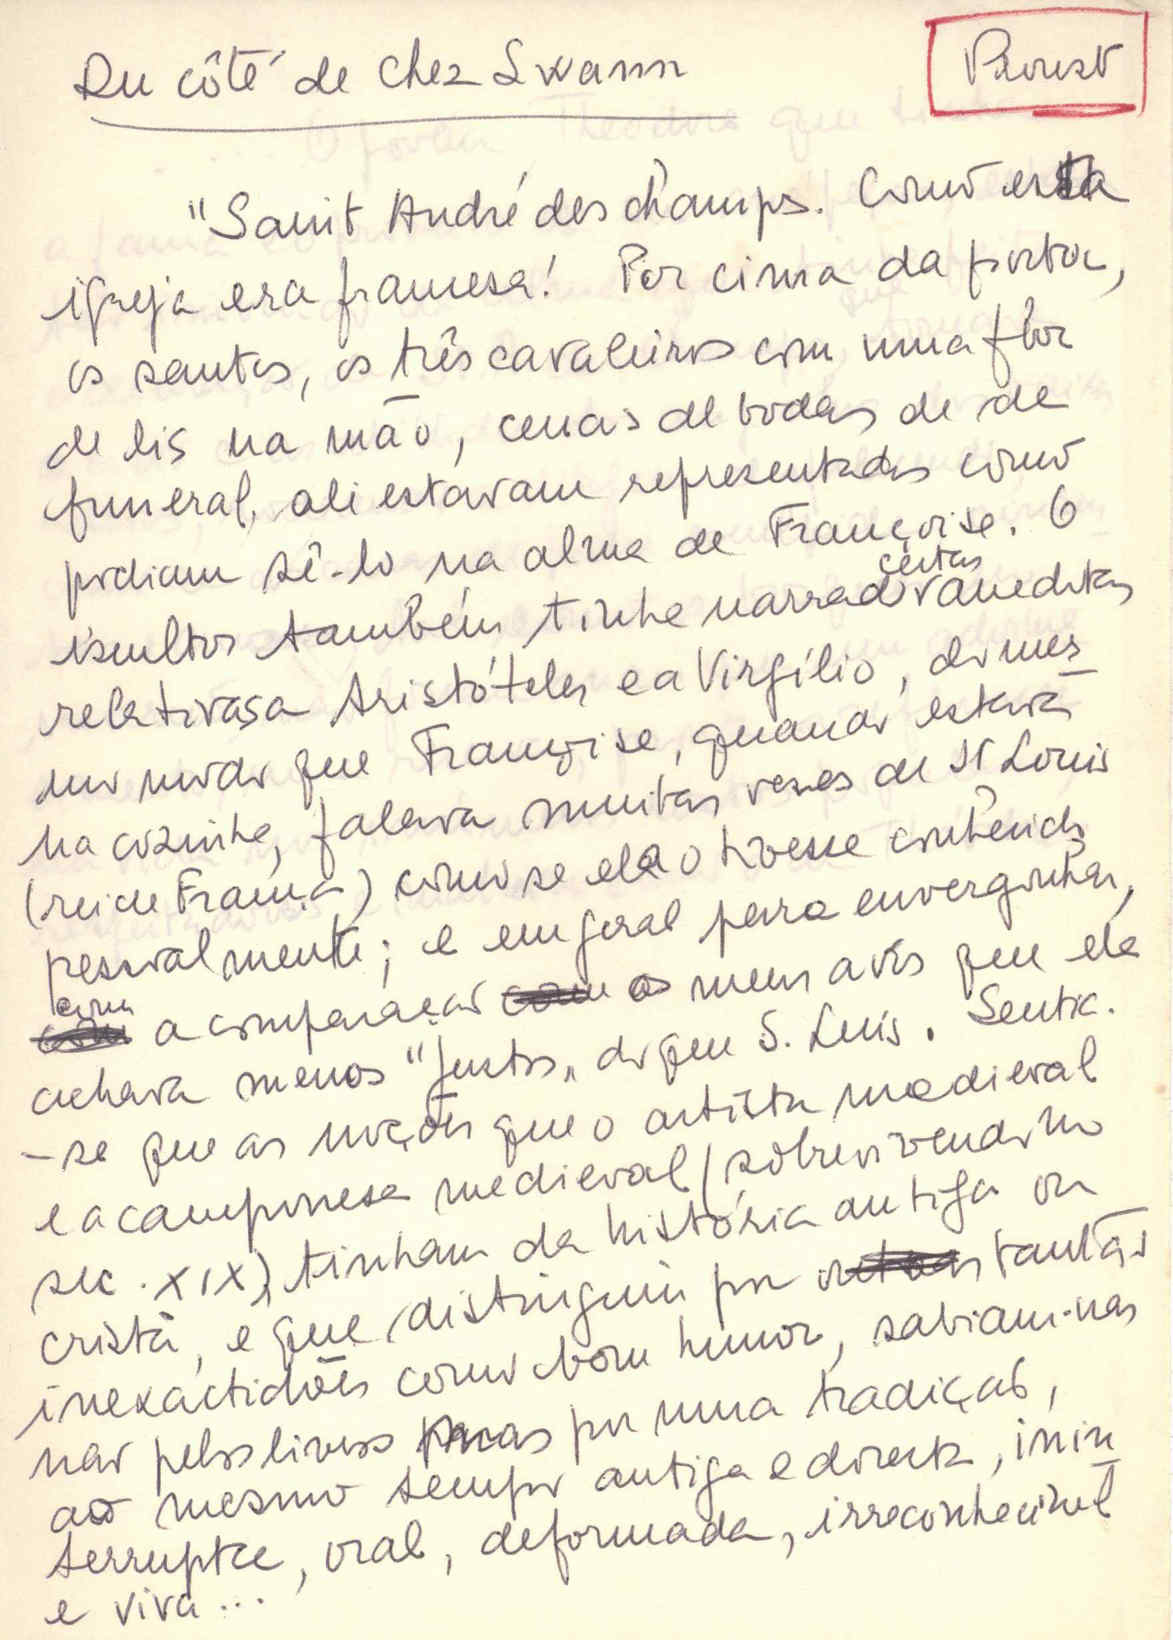 Du côté de chez Swann
Proust
"Saint André des champs. Como esta
igreja era francesa! Por cima da porta,
os santos, os três cavaleiros com uma flor
de lis na mão, cenas de bodas de de
funeral, ali estavam representados como
podiam sê-lo na alma de Françoise. O
certas
escultor também tinha narrado anedotas
relativas a Aristóteles e a Virgílio, do mes
mo modo que Françoise, quando estava
na cozinha, falava muitas vezes de St Louis
(rei de França) como se ela o tivesse conhecido
pessoalmente; e em geral para envergonhar,
com
a comparação os meus avós que ela
achava menos "justos" do que S. Luis. Sentia-
-se que as noções que o artista medieval
e a camponesa medieval (sobrevivendo no
sec. XIX), tinham da história antiga ou
cristã, e que distinguiu por tantas
inexactidões como bom humor, sabiam-nas
não pelos livros mas por uma tradição,
ao mesmo tempo antiga e directa, inin
terrupta, oral, deformada, irreconhecível
e viva...